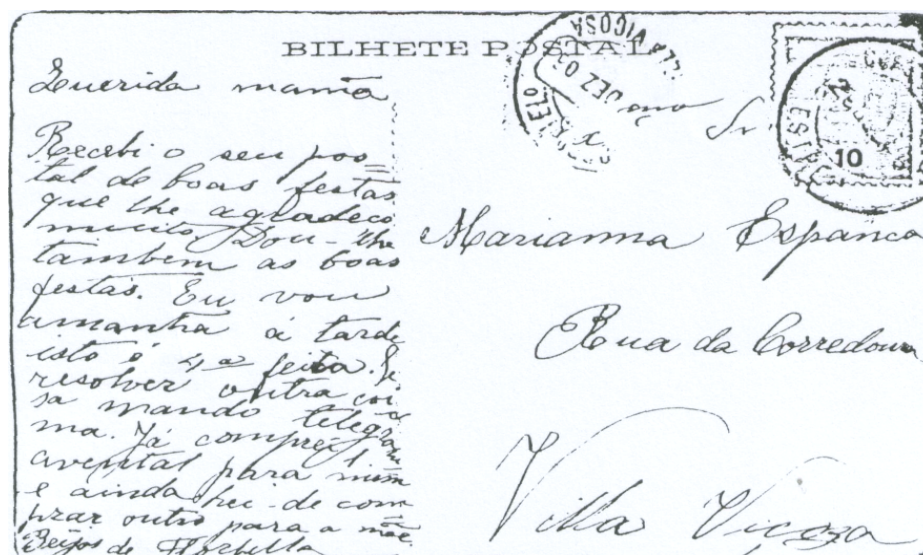 BILHETE POSTAL
Querida mamã
Recebi o seu pos=
tal de boas festas
que lhe agradeço
muito. Dou-lhe
tambem as boas
festas. Eu vou
amanhã á tarde
isto é 4ª feira. Se
resolver outra coi
sa mando telegra
ma. Já comprei 1
avental para mim
e ainda hei-de com
prar outro para a mãe.
Beijos de Florbella
VILLA VIÇOSA
DEZ
10
Marianna Espanca
Rua da Corredoura
Villa Viçoza